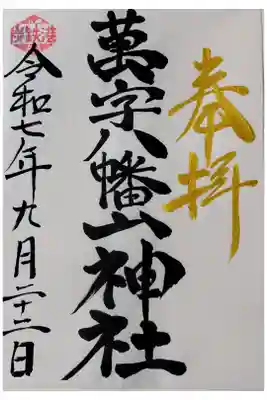 奉拝
萬字八幡山神社
令和七年九月二十三日